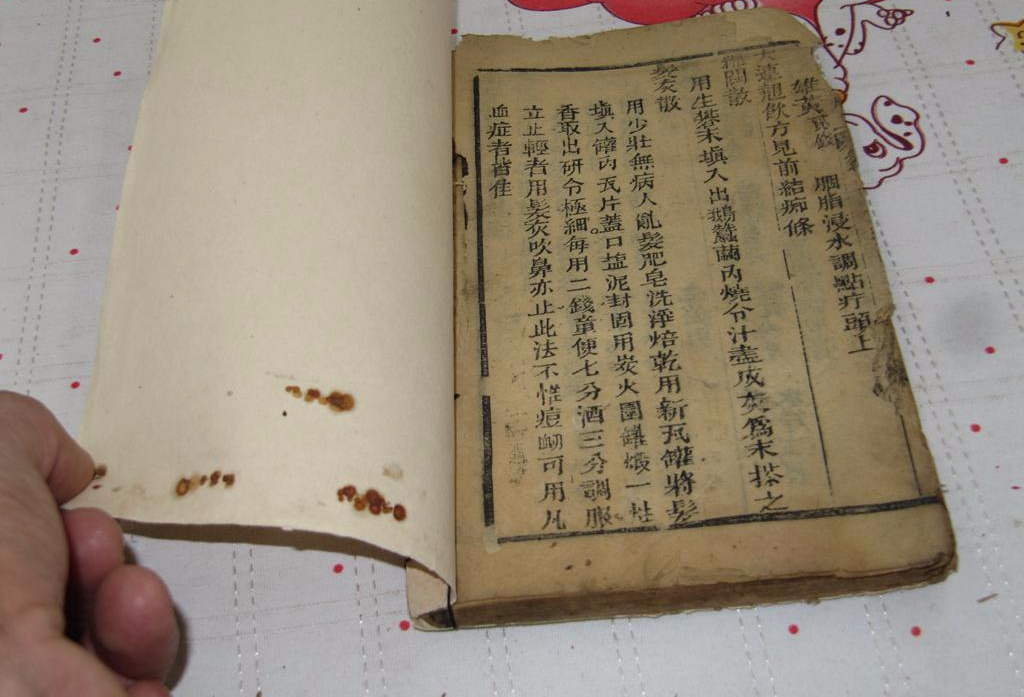 雄黃 胭脂浸水調點疔頭上
大連翹飲方見前結痂條
綿繭散
用生礬末塡入出鵝蠶繭內燒令汁盡成灰爲末搽之
髮灰散
用少壯無病人亂髮肥皂洗淨焙乾用新瓦罐將髮
塡入罐內瓦片蓋口塩泥封固用炭火圍罐煅一炷
香取出研令極細每用二錢童便七分酒三分調服
立止輕者用髮灰吹鼻亦止此法不惟痘衂可用凡
血症者皆佳